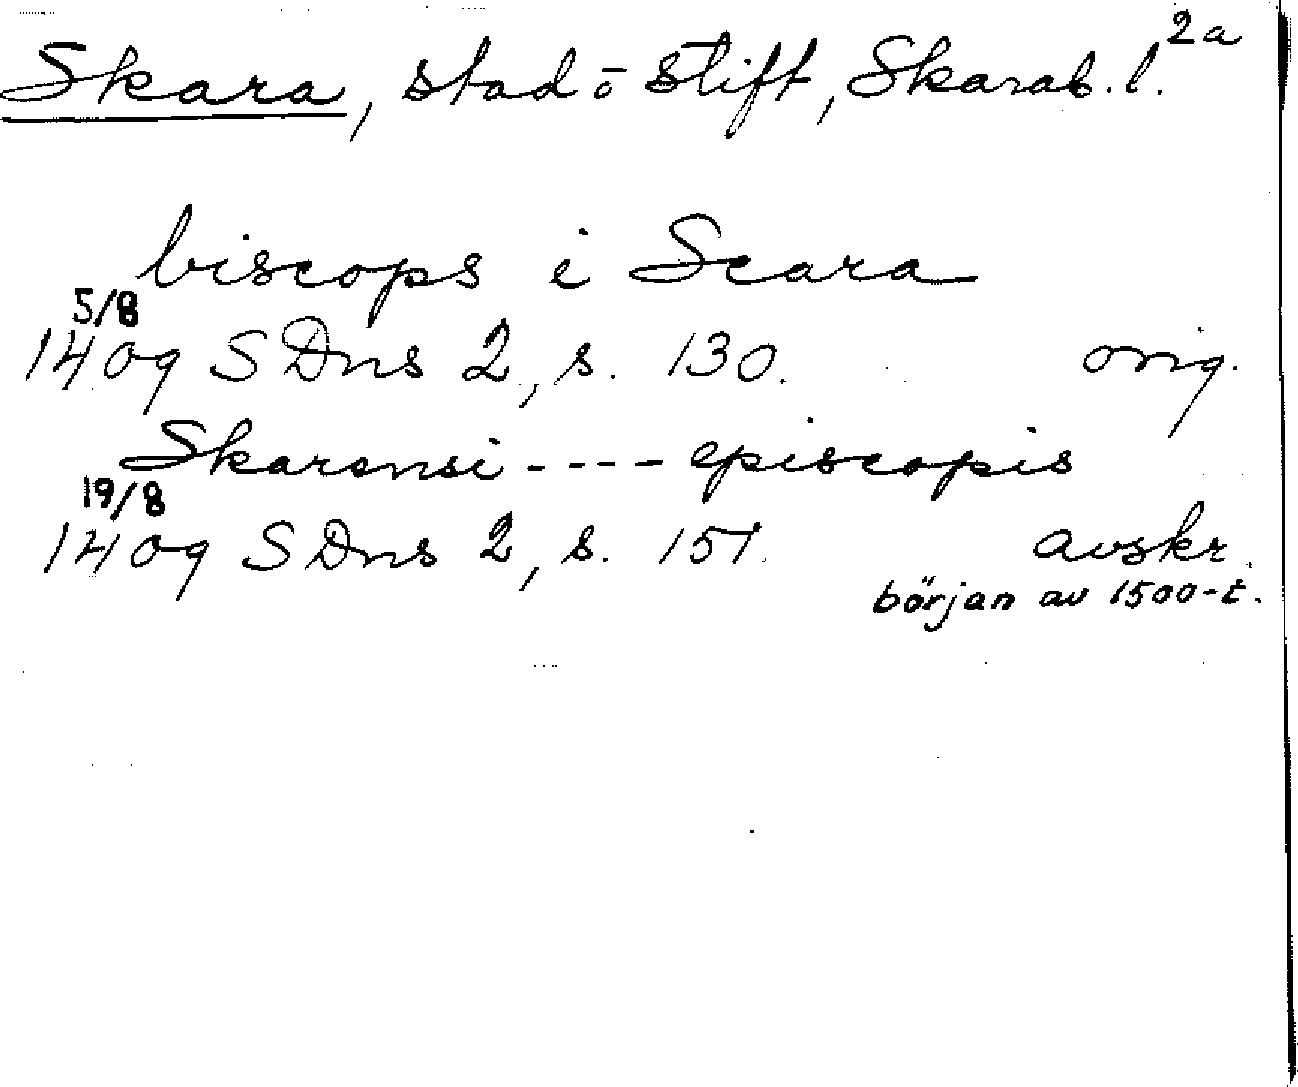 Skara, stad o stift, Skarab. l. 2a
biscops i Scara
5/8
1409 SDns 2, s. 130. orig.
Skarensi - - - - episcopis
19/8
1409 SDns 2, s. 151. avskr.
början av 1500-t.